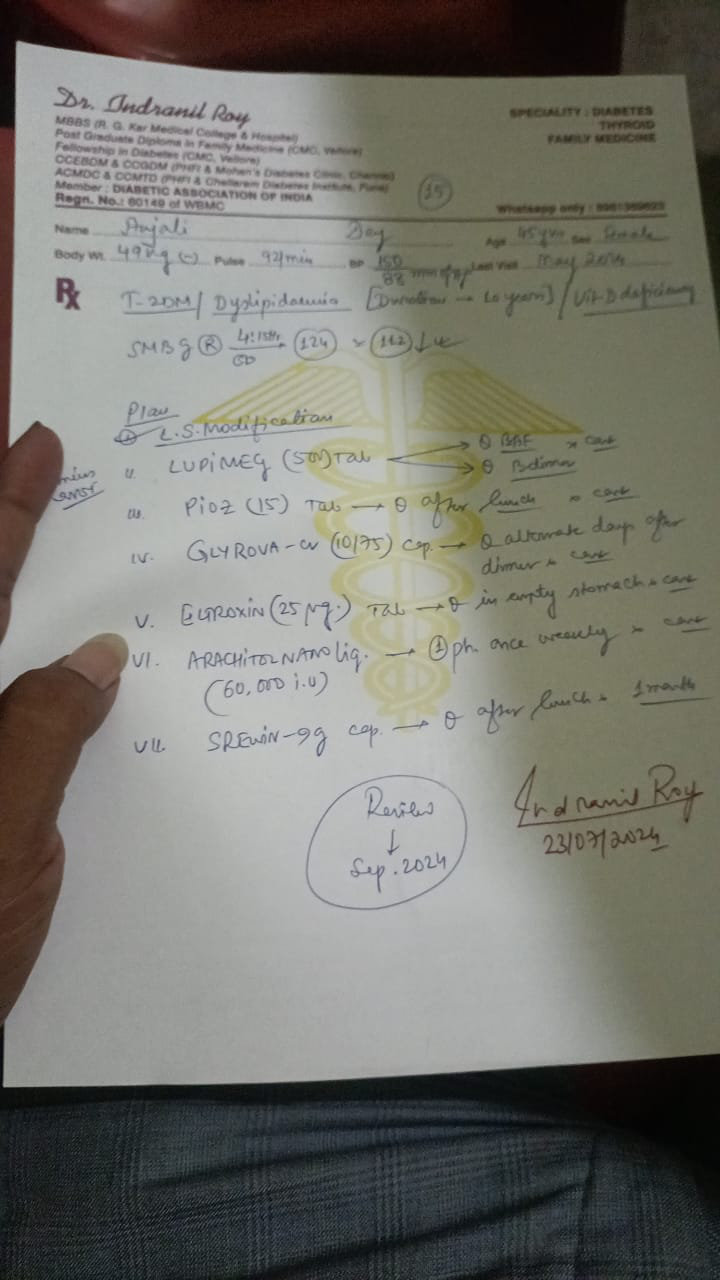 Dr. Indranil Roy
MBBS (R. G. Kar Medical College & Hospital)
Post Graduate Diploma in Family Medicine (CMC, Vellore)
Fellowship in Diabetes (CMC, Vellore)
CCEBDM & CCGDM (PHFI & Mohan's Diabetes Clinic, Chennai)
ACMDC & CCMTD (PHFI & Chellaram Diabetes Institute, Pune)
Member : DIABETIC ASSOCIATION OF INDIA
Regn. No.: 60149 of WBMC
SPECIALITY : DIABETES
THYROID
FAMILY MEDICINE
15
Whatsapp only :
Name Anjali Dey Age 45 yrs Sex Female
Body Wt. 49 kg (-) Pulse 92/min BP 150/88 mm of Hg Last Visit May 2024
Rx
T-2DM / Dyslipidaemia [Duration → 10 years] / Vit-D deficiency
SMBG (R) 124 112
Plan
L.S. Modification
II. LUPIMEG (500) Tab BBF cont
B dinner
III. PIOZ (15) Tab → after lunch x cont
IV. GLYROVA-CV (10/75) cap. → alternate days after
dinner x cont
V. ELTROXIN (25 µg.) Tab → in empty stomach x cont
VI. ARACHITOL NANO liq. → 1 ph. once weekly x cont
(60,000 i.u)
VII. SREWIN-9g cap. → after lunch x 1 month
Review
↓
Sep. 2024
Indranil Roy
23/07/2024